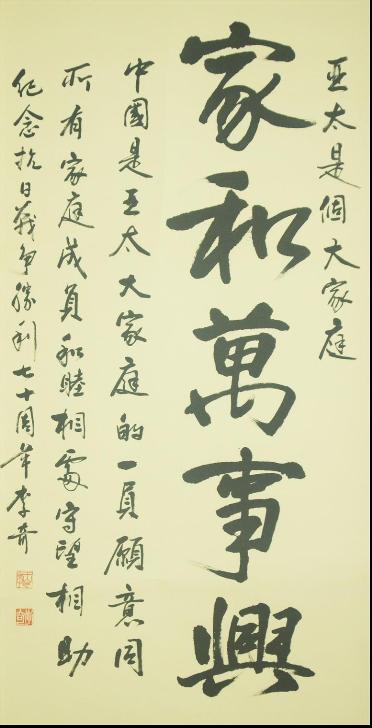 亚太是個大家庭
家和萬事興
中國是亚太大家庭的一員願意同
所有家庭成員和睦相處守望相助
纪念抗日战争勝利七十周年李奇